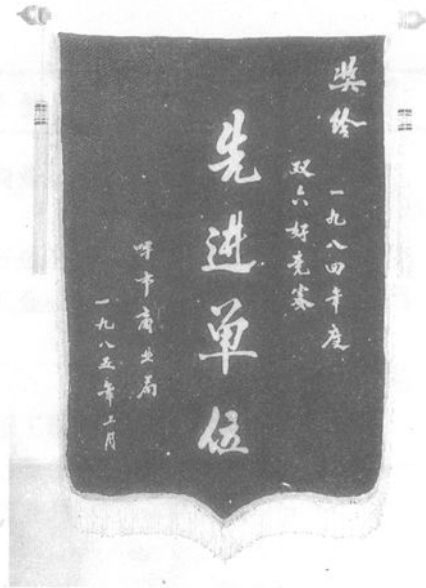 奖给
一九八四年度
双六好竞赛
先进单位
呼市商业局
一九八五年三月